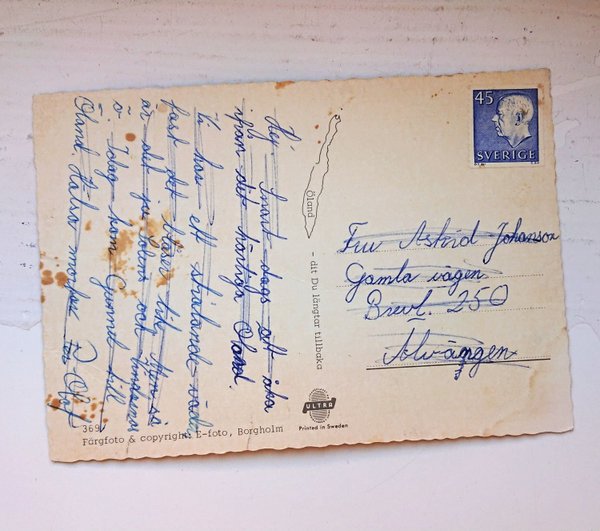 Hej Snart dags att åka
ifrån det härliga Öland.
Vi har ett strålande väder
fast det blåser lite. Men vi
är det ju solens och vindarnas
ö. Idag kom Gunnel till
Öland. Hälsa morfar
Öland
- dit Du längtar tillbaka
45
SVERIGE
Fru Astrid Johanson
Gamla vägen
Brevl. 250
Alvängen
369
Färgfoto & copyright: E-foto, Borgholm
ULTRA
Printed in Sweden